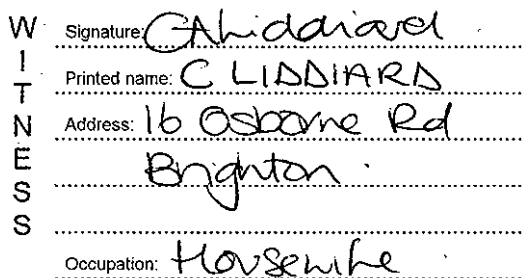 WITNESS
Signature: CA Liddiard
Printed name: C LIDDIARD
Address: 16 Osborne Rd
Brighton.
Occupation: Housewife